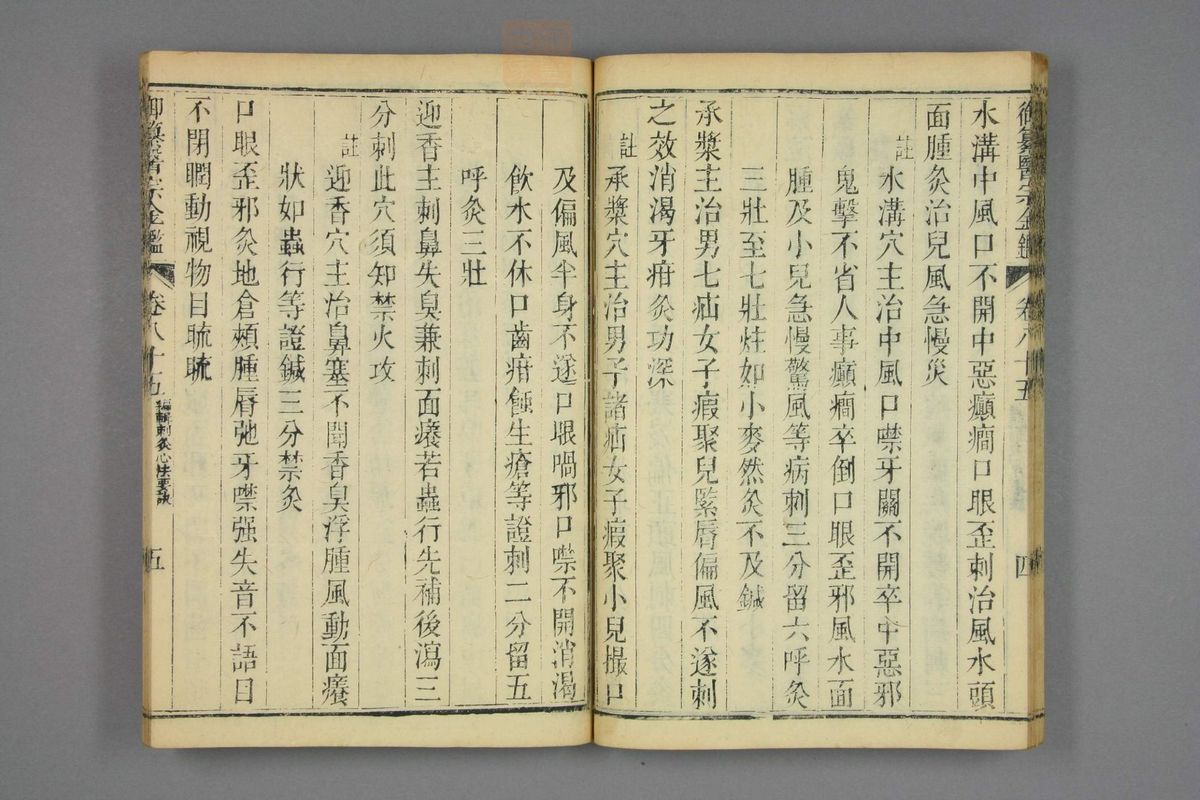 御纂醫宗金鑑 卷八十五 四
水溝中風口不開中惡癲癇口眼歪刺治風水頭
面腫灸治兒風急慢災
註水溝穴主治中風口噤牙關不開卒中惡邪
鬼擊不省人事癲癇卒倒口眼歪邪風水面
腫及小兒急慢驚風等病刺三分留六呼灸
三壯至七壯炷如小麥然灸不及鍼
承漿主治男七疝女子瘕聚兒緊唇偏風不遂刺
之效消渴牙疳灸功深
註承漿穴主治男子諸疝女子瘕聚小兒撮口
及偏風半身不遂口眼喎邪口噤不開消渴
飲水不休口齒疳蝕生瘡等證刺二分留五
呼灸三壯
迎香主刺鼻失臭兼刺面癢若蟲行先補後瀉三
分刺此穴須知禁火攻
註迎香穴主治鼻塞不聞香臭浮腫風動面癢
狀如蟲行等證鍼三分禁灸
口眼歪邪灸地倉頰腫唇弛牙噤强失音不語目
不閉瞤動視物目䀮䀮
御纂醫宗金鑑 卷八十五 編輯刺灸心法要訣 五